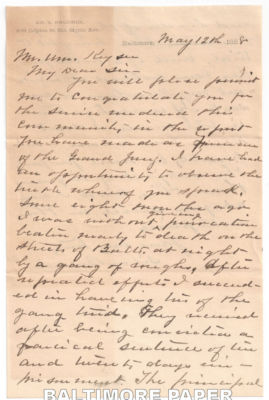 Baltimore, May 12th 1888
Mr. Wm. Keyser
My Dear Sir
You will please permit
me to congratulate you for
the service rendered this
community in the report
you have made as
of the Grand Jury. I have had
an opportunity to observe the
truth whereof you speak.
Some eights months ago
I was without provocation
beaten nearly to death on the
streets of Balto. at night
by a gang of roughs. After
repeated efforts I succeed-
ed in having two of the
gang tried. They received
after being convicted a
farcical sentence of ten
and twenty days im-
prisonment. The principal
BALTIMORE PAPER